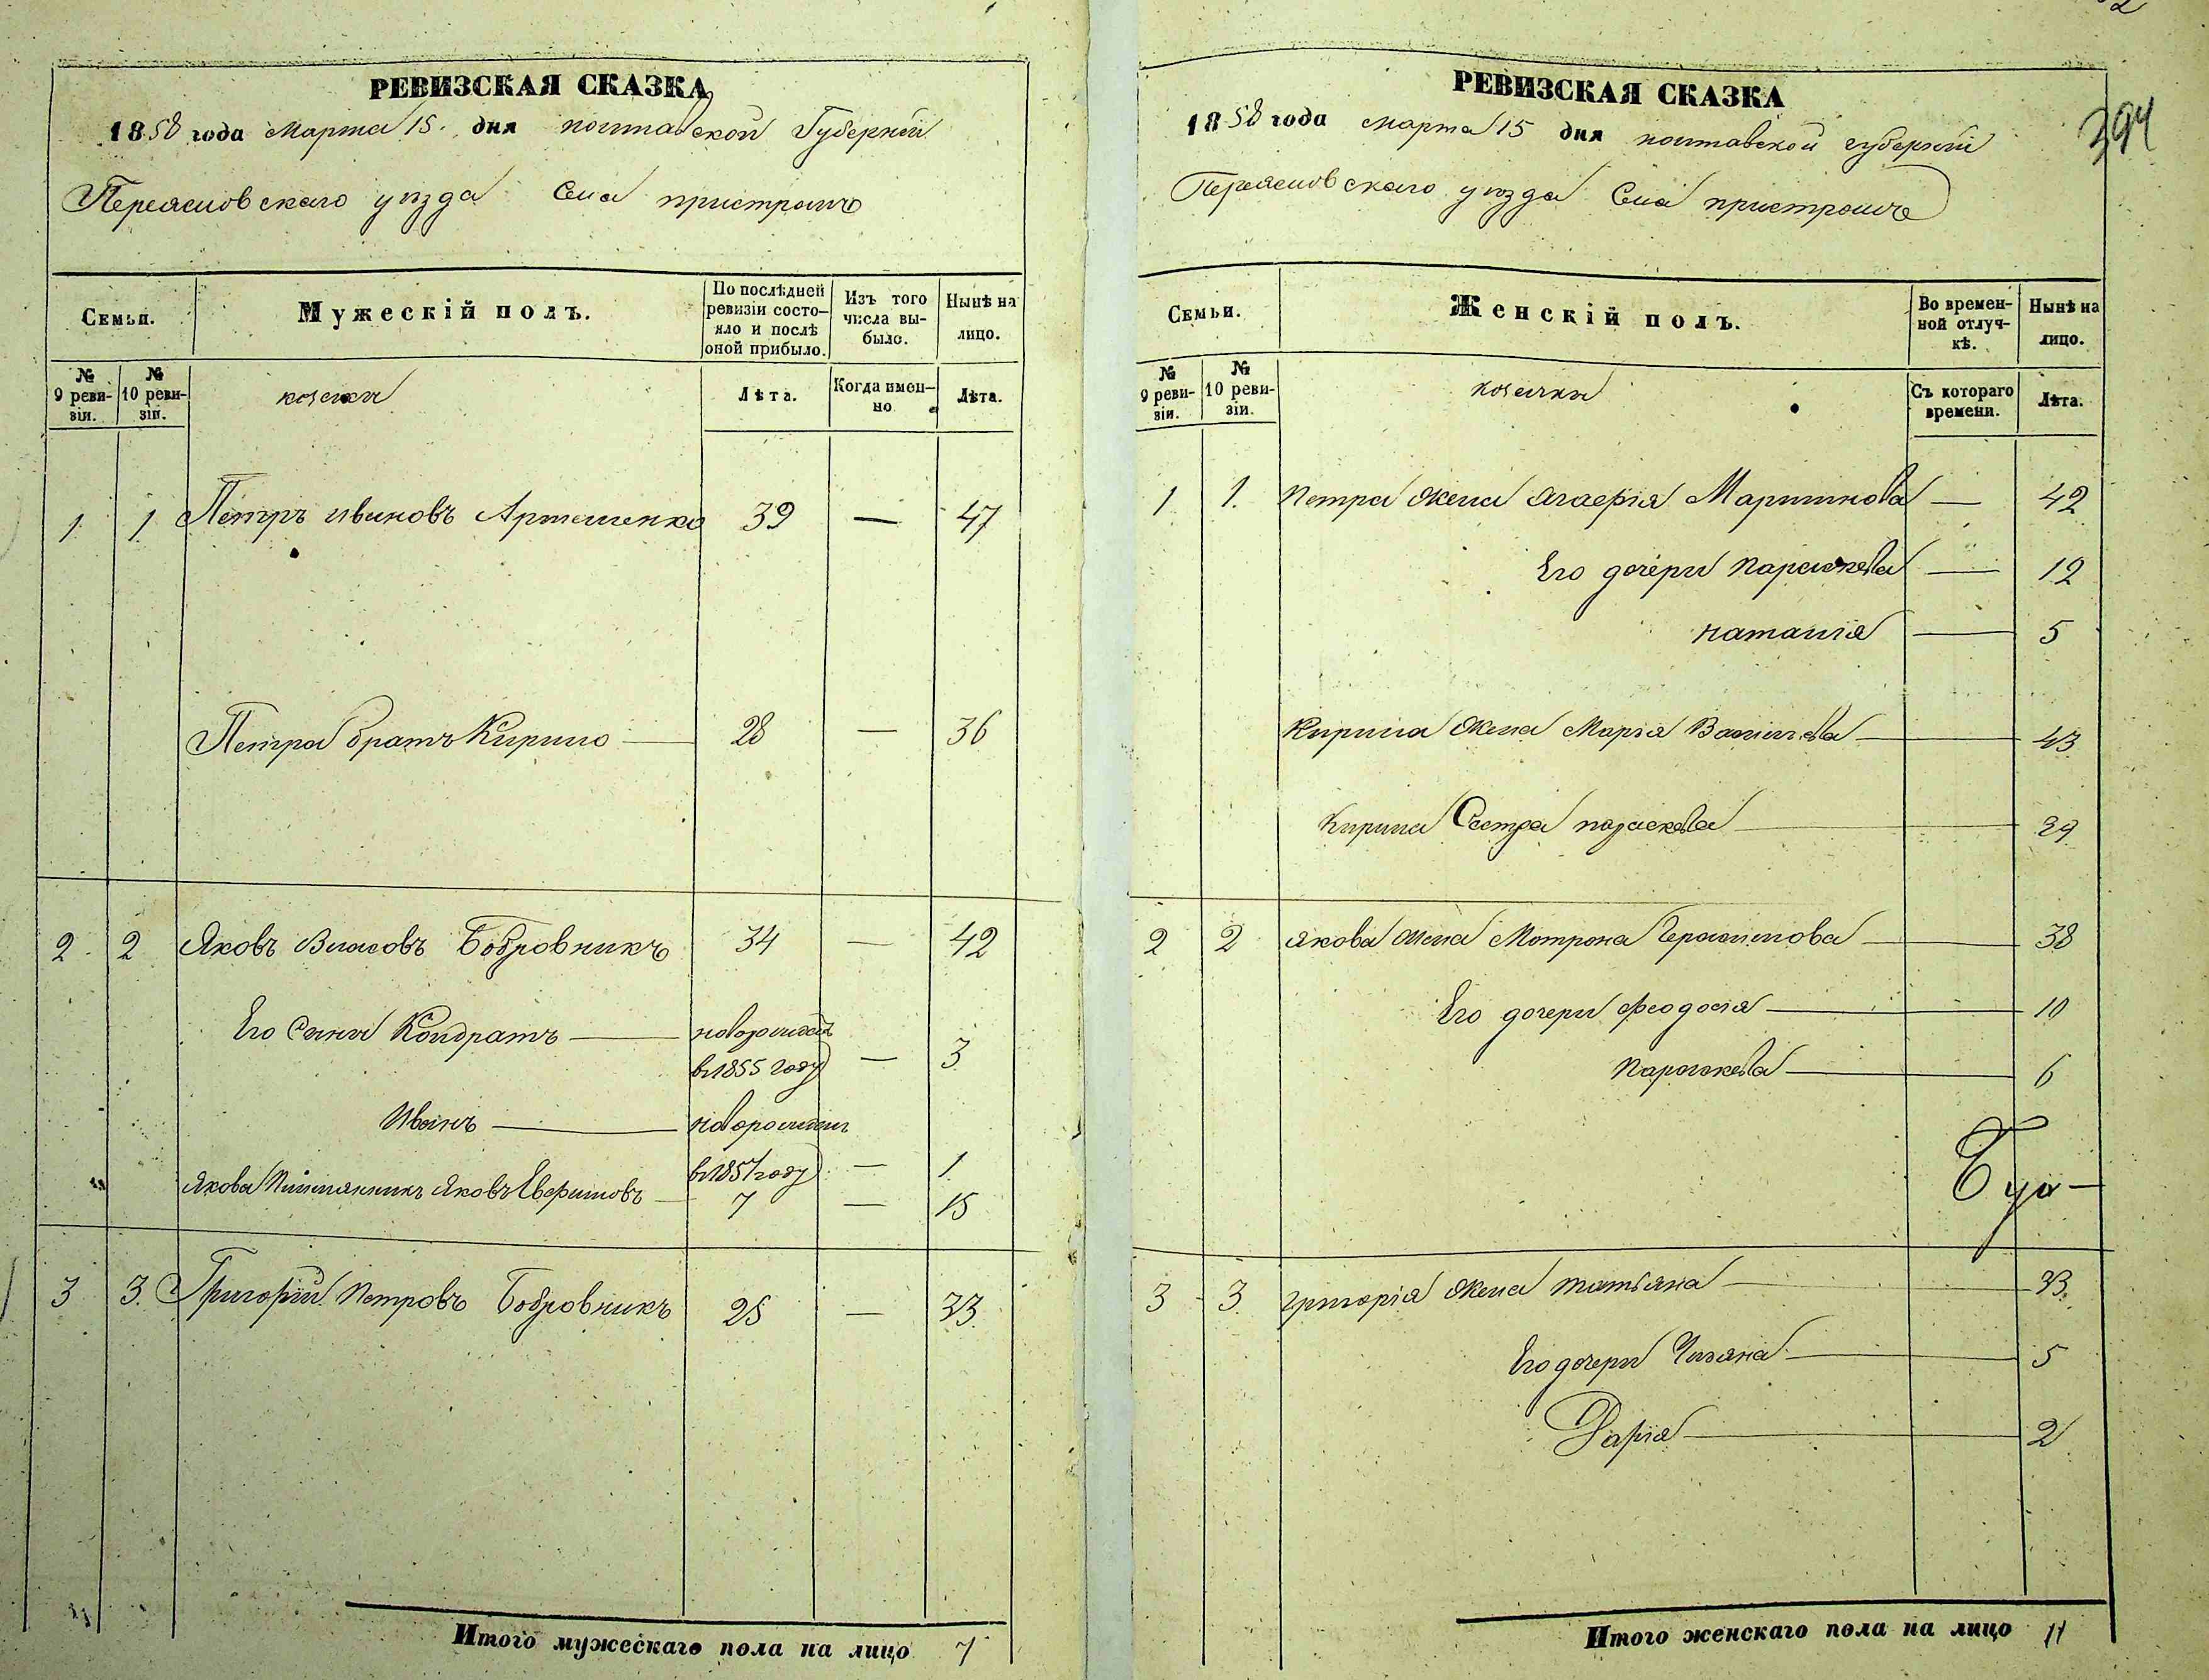 РЕВИЗСКАЯ СКАЗКА
1858 года Марта 15. дня полтавской Губерніи
Переяславскаго уѣзда Села пристромъ
Семьи.
Мужескій полъ.
По послѣдней ревизіи состояло и послѣ оной прибыло.
Изъ того числа выбыло.
Нынѣ на лицо.
№ 9 ревизіи.
№ 10 ревизіи.
козаки
Лѣта.
Когда именно.
Лѣта.
1 1 Петръ ивановъ Артеменко 39 — 47
Петра братъ Кирило — 28 — 36
2 2 Яковъ Власовъ Бобровникъ 34 — 42
Его Сыны Кондратъ — новорожденъ
в 1855 году — 3
Иванъ — новорожденъ
в 1857 году — 1
Якова Племянникъ Яковъ Евфимовъ — 7 — 15
3 3. Григорій Петровъ Бобровникъ 25 — 33
Итого мужескаго пола на лицо 7
394
РЕВИЗСКАЯ СКАЗКА
1858 года марта 15 дня полтавской губерніи
Переяславскаго уѣзда Села пристромъ
Семьи.
Женскій полъ.
Во временной отлучкѣ.
Нынѣ на лицо.
№ 9 ревизіи.
№ 10 ревизіи.
козачки
Съ котораго времени.
Лѣта.
1 1. Петра жена Агафія Мартинова — 42
Его дочери Параскева — 12
наталія — 5
Кирила жена Марія Васильева — 43
Кирила Сестра параскева — 29
2 2 Якова жена Мотрона Герасимова — 38
Его дочери Феодосія — 10
Параскева — 6
3 3. григорія жена татьяна — 33.
Его дочери Уліяна — 5
Дарія — 2
Итого женскаго пола на лицо 11